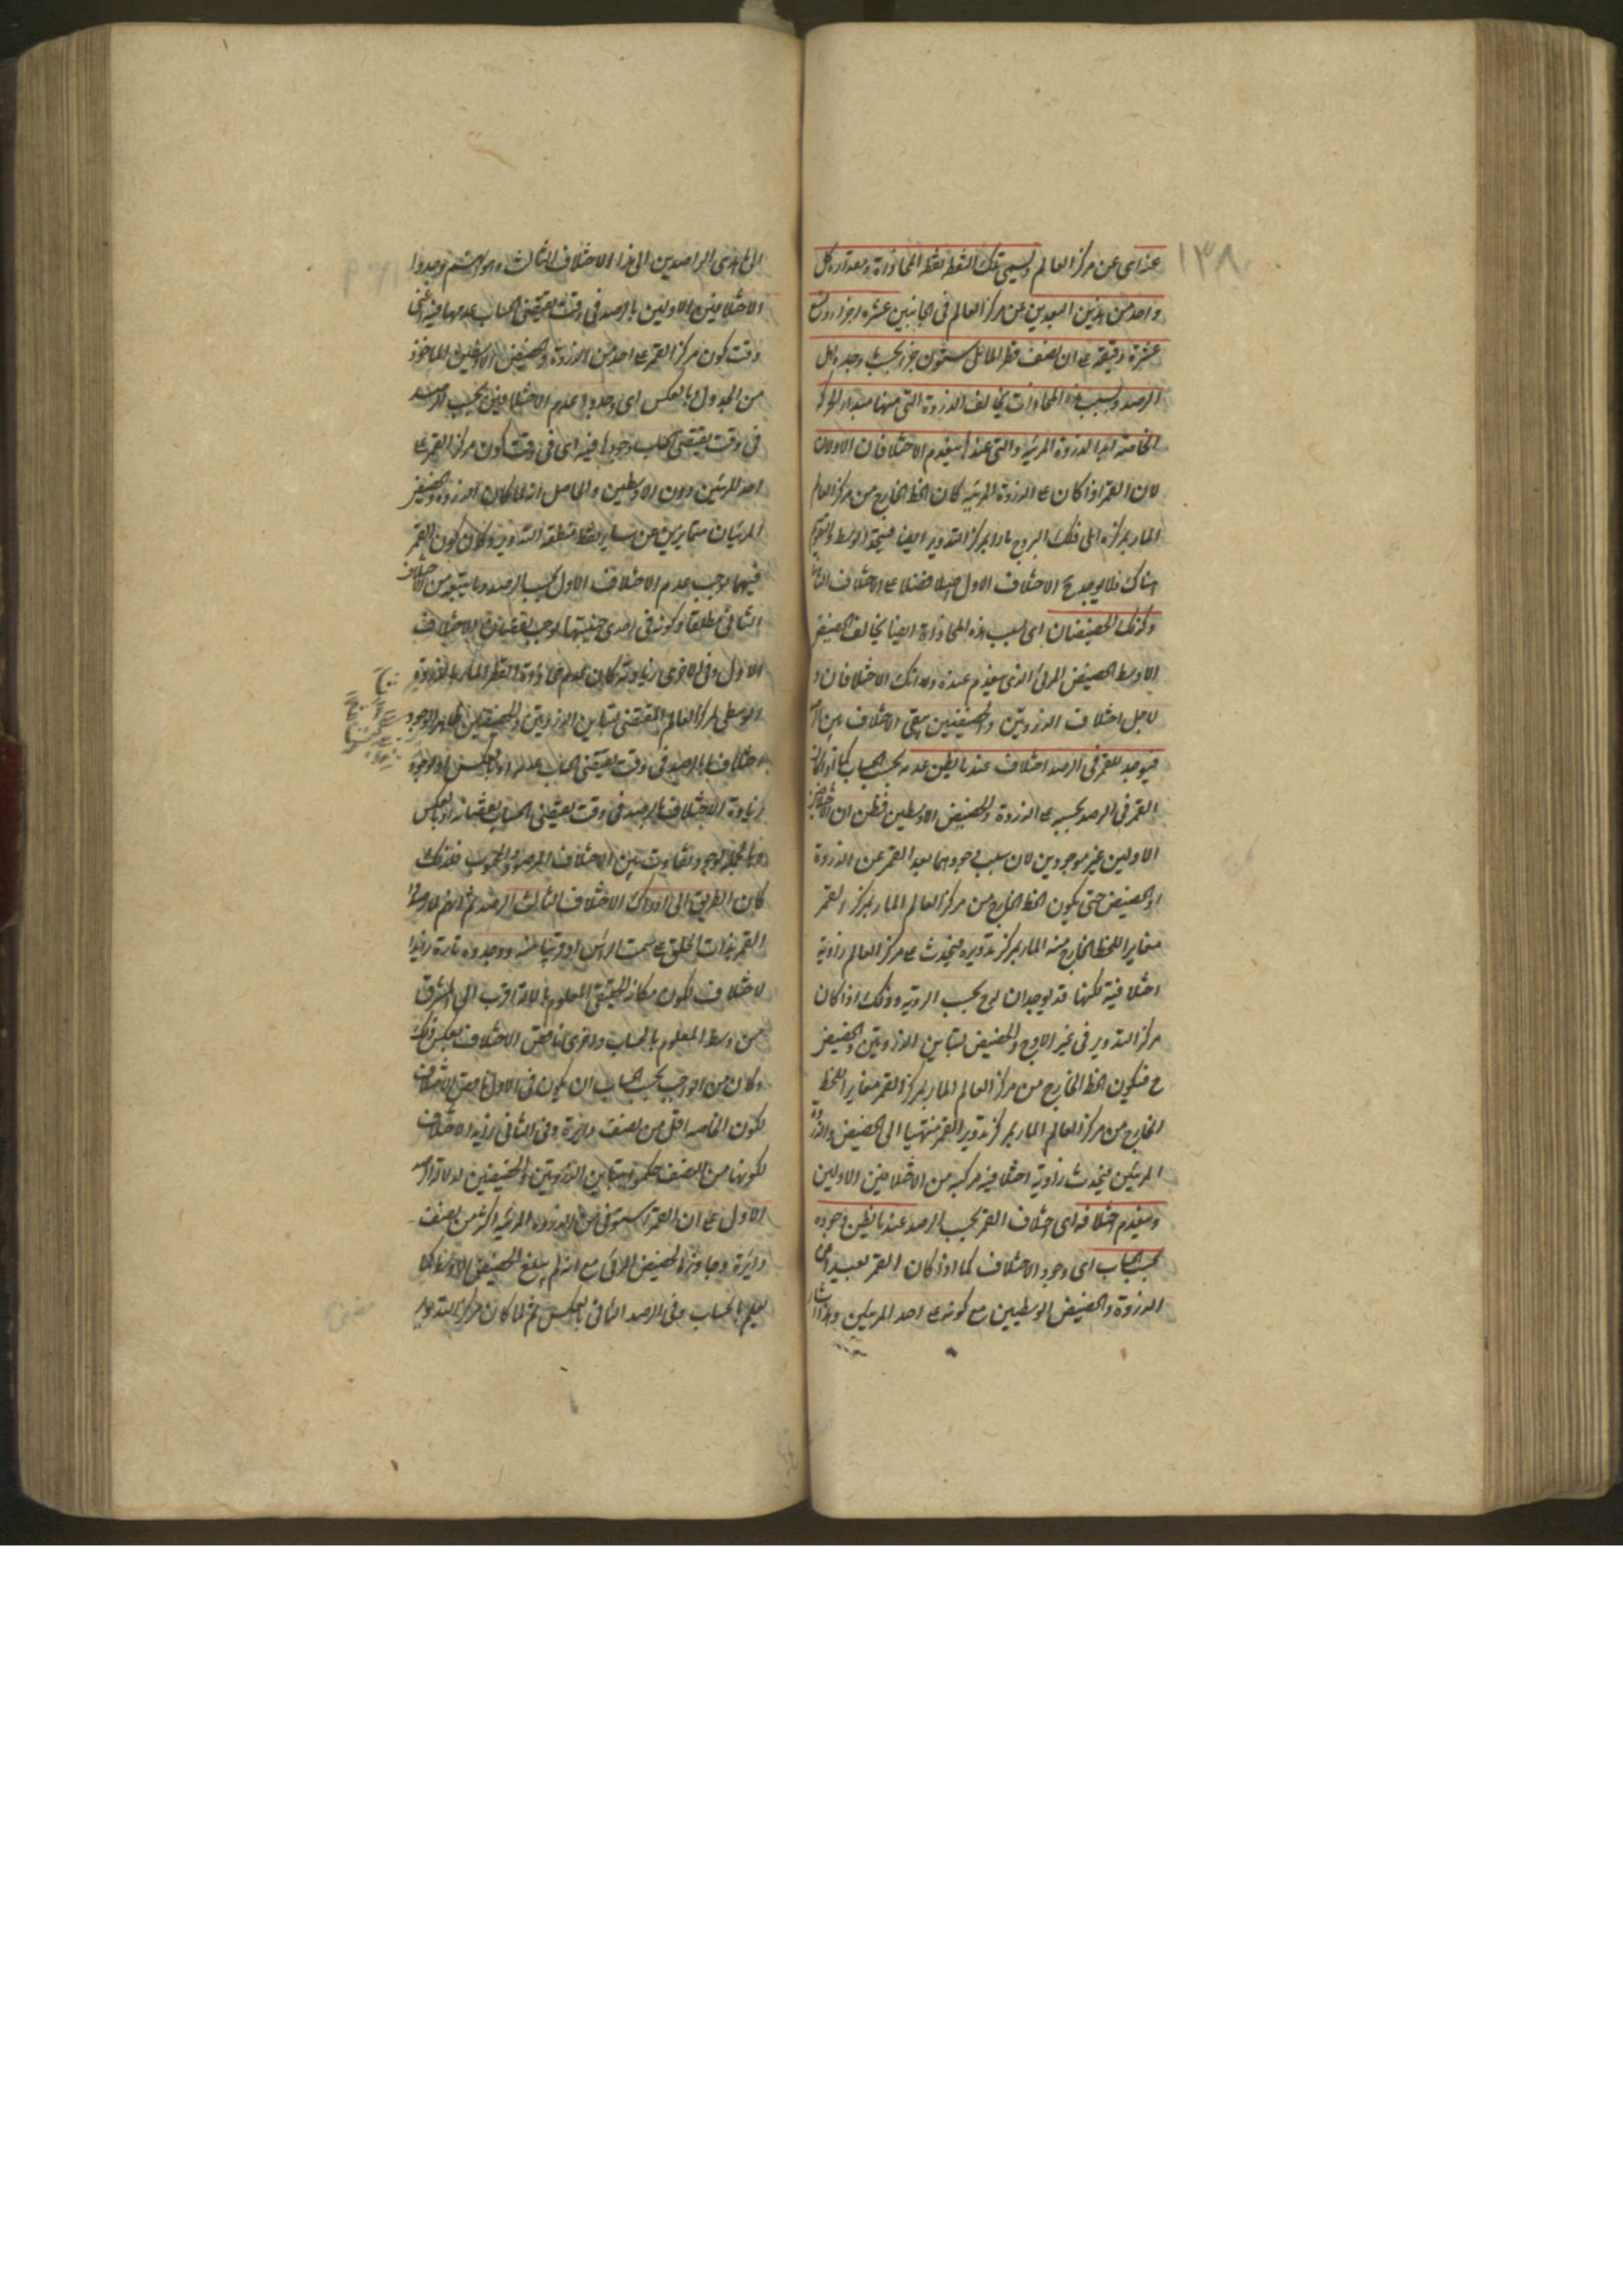 ١٣٨
عنه اى عن مركز العالم ويسمى تلك النقطة نقطة المحاذاة وبعد كل
واحد من هذين البعدين عن مركز العالم فى الجانبين عشرة اجزاء وتسع
عشرة دقيقة على ان نصف قطر المائل ستون جزء بحسب وجده اهل
الرصد وبسبب هذه المحاذات يخالف الذروة التى منها مبداء الحركة
الخاصة الذروة المرئية والتى عندها ينعدم الاختلافان الاولان
لان القمر اذا كان على الذروة المرئية كان الخط الخارج من مركز العالم
المار بمركزه الى فلك البروج مارا بمركز التدوير ايضا فيتحد الوسط والتقويم
هناك فلا يوجد ح الاختلاف الاول اصلا فضلا على الاختلاف الثانى
وكذلك الحضيضان اى بسبب هذه المحاذاة ايضا يخالف الحضيض
الاوسط الحضيض المرئى الذى ينعدم عنده ذلك الاختلافان و
لاجل اختلاف الذروتين والحضيضين يبقى الاختلاف
فيوجد للقمر فى الرصد اختلاف عندما يظن عدمه بحسب الحساب كما اذا كان
القمر فى الرصد بحسبه على الذروة والحضيض الاوسطين فظن ان الاختلافين
الاولين غير موجودين لان سبب وجودهما بعد القمر عن الذروة
او الحضيض حتى يكون الخط الخارج من مركز العالم المار بمركز القمر
مغايرا للخط الخارج منه المار بمركز تدويره فيحدث على مركز العالم زاوية
اختلافية لكنها قد يوجدان ح بحسب الروية وذلك اذا كان
مركز التدوير فى غير الاوج والحضيض لتباين الذروتين والحضيض
ح فيكون الخط الخارج من مركز العالم المار بمركز القمر مغايرا للخط
الخارج من مركز العالم المار بمركز تدوير القمر منتهيا الى الحضيض والذروة
المرئيين فيحدث زاوية اختلافية مركبة من الاختلافين الاولين
وينعدم اختلافه اى اختلاف القمر بحسب الرصد عندما يظن وجوده
بحسب الحساب اى وجود الاختلاف كما اذا كان القمر بعيدا عن
الذروة والحضيض الوسطيين مع كونه على احد المرئيين وهذا اشار
الى الراصدين الى هذا الاختلاف الثالث وهو انهم وجدوا
الاختلافين الاولين بالرصد فى وقت يقتضى الحساب عدمها فيه اى
وقت كون مركز القمر على احد من الذروة والحضيض الاوسطين الماخوذ
من الجدول وبالعكس اى وجدوا عدم الاختلافين بحسب الرصد
فى وقت يقتضى الحساب وجودها فيه اى فى وقت كون مركز القمر على
احد المرئيين دون الاوسطين والحاصل انه لما كان الذروة والحضيض
المرئيان متمايزين عن سائر نقط منطقة التدوير وكان كون القمر
فيهما يوجب عدم الاختلاف الاول بحسب الرصد وما يتبعه من الاختلاف
الثانى مطلقا وكونه فى احدى جنبتيهما يوجب نقصان الاختلاف
الاول وفى الاخرى زيادته كان عدم محاذاة القطر المار بالذروة
الوسطى لمركز العالم المقتضى لتباين الذروتين والحضيضين ظاهر الوجود
اختلاف بالرصد فى وقت يقتضى الحساب عدمه او بالعكس او لوجود
زيادة الاختلاف بالرصد فى وقت يقتضى الحساب نقصانه او بالعكس
وبالجملة لوجود تفاوت بين الاختلاف المرصود والمحسوب فذلك
كان الطريق الى ادراك الاختلاف الثالث الرصد ثم انهم لما رصدوا
القمر بذات الحلق على سمت الراس او قريبا منه ووجدوه تارة زائد
الاختلاف لكون مكانه الحقيقى المعلوم بالآلة اقرب الى المشرق
من وسطه المعلوم بالحساب واخرى ناقص الاختلاف بعكس ذلك
وكان من الواجب بحسب الحساب ان يكون فى الاول ناقص الاختلاف
لكون الخاصة اقل من نصف دائرة وفى الثانى زايد الاختلاف
لكونها من النصف حكموا بتباين الذروتين والحضيضين لدلالة الرصد
الاول على ان القمر استوفى من الذروة المرئية اكثر من نصف
دائرة وجاوز الحضيض المرئى مع انه لم يبلغ الحضيض الاوسط كما
يعلم بالحساب وفى الرصد الثانى بالعكس ثم لما كان مركز التدوير